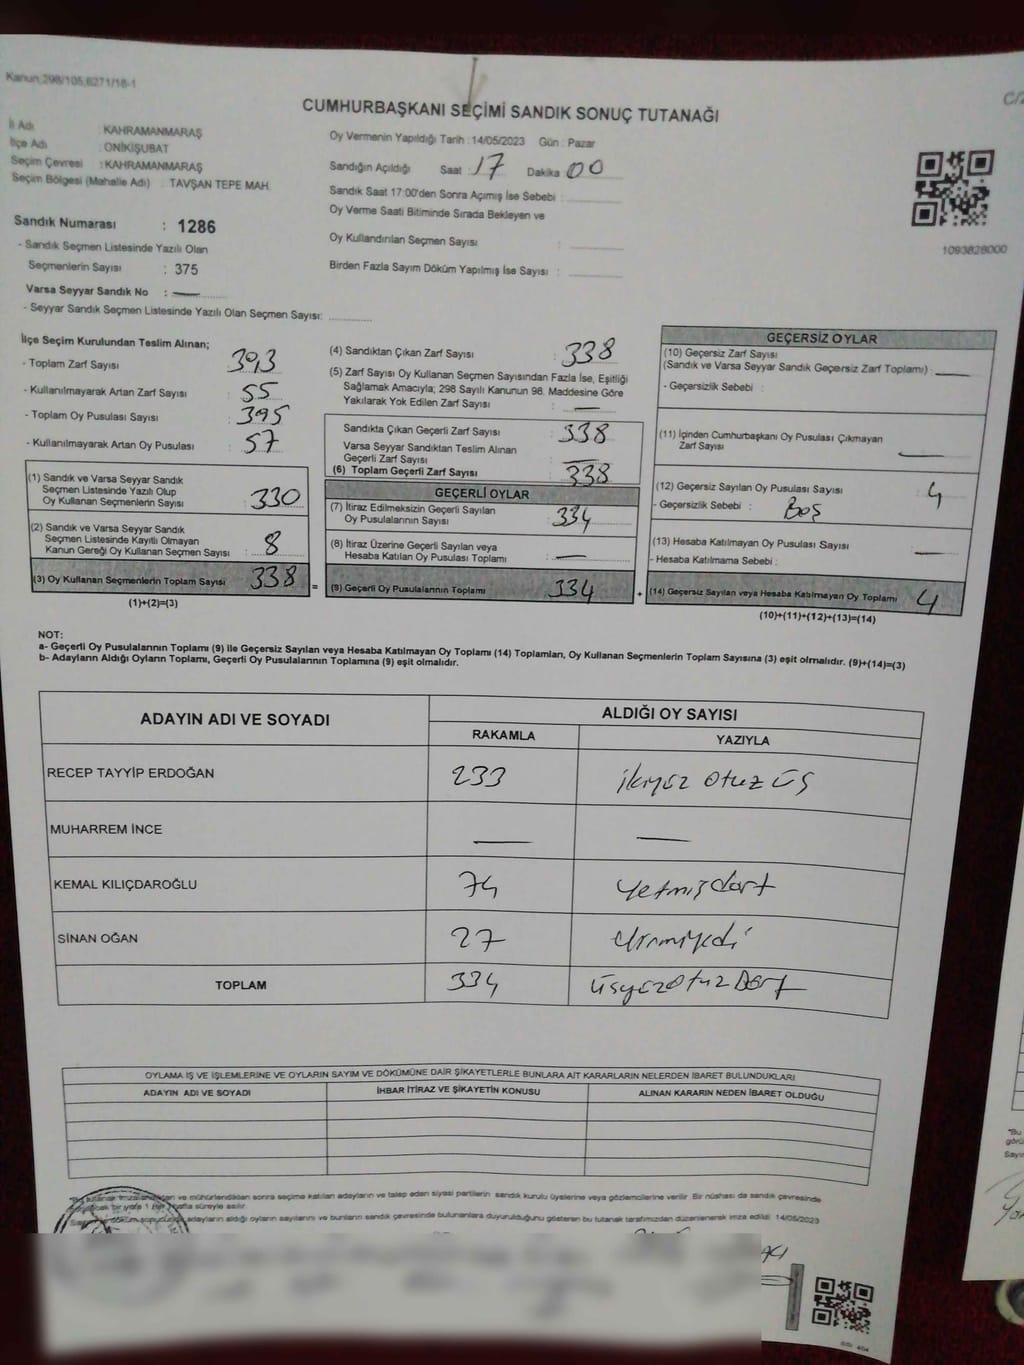 Kanun 298/105,6271/18-1
CUMHURBAŞKANI SEÇİMİ SANDIK SONUÇ TUTANAĞI
İl Adı : KAHRAMANMARAŞ
İlçe Adı : ONİKİŞUBAT
Seçim Çevresi : KAHRAMANMARAŞ
Seçim Bölgesi (Mahalle Adı) : TAVŞAN TEPE MAH.
Sandık Numarası : 1286
- Sandık Seçmen Listesinde Yazılı Olan
Seçmenlerin Sayısı : 375
Varsa Seyyar Sandık No : —
- Seyyar Sandık Seçmen Listesinde Yazılı Olan Seçmen Sayısı:
Oy Vermenin Yapıldığı Tarih : 14/05/2023 Gün : Pazar
Sandığın Açıldığı Saat 17 Dakika 00
Sandık Saat 17:00'den Sonra Açımış İse Sebebi :
Oy Verme Saati Bitiminde Sırada Bekleyen ve
Oy Kullandırılan Seçmen Sayısı :
Birden Fazla Sayım Döküm Yapılmış İse Sayısı :
1093828000
İlçe Seçim Kurulundan Teslim Alınan;
- Toplam Zarf Sayısı : 393
- Kullanılmayarak Artan Zarf Sayısı : 55
- Toplam Oy Pusulası Sayısı : 395
- Kullanılmayarak Artan Oy Pusulası : 57
(1) Sandık ve Varsa Seyyar Sandık
Seçmen Listesinde Yazılı Olup
Oy Kullanan Seçmenlerin Sayısı : 330
(2) Sandık ve Varsa Seyyar Sandık
Seçmen Listesinde Kayıtlı Olmayan
Kanun Gereği Oy Kullanan Seçmen Sayısı : 8
(3) Oy Kullanan Seçmenlerin Toplam Sayısı 338 =
(1)+(2)=(3)
(4) Sandıktan Çıkan Zarf Sayısı : 338
(5) Zarf Sayısı Oy Kullanan Seçmen Sayısından Fazla İse, Eşitliği
Sağlamak Amacıyla; 298 Sayılı Kanunun 98. Maddesine Göre
Yakılarak Yok Edilen Zarf Sayısı : —
Sandıkta Çıkan Geçerli Zarf Sayısı : 338
Varsa Seyyar Sandıktan Teslim Alınan
Geçerli Zarf Sayısı : —
(6) Toplam Geçerli Zarf Sayısı : 338
GEÇERLİ OYLAR
(7) İtiraz Edilmeksizin Geçerli Sayılan
Oy Pusulalarının Sayısı : 334
(8) İtiraz Üzerine Geçerli Sayılan veya
Hesaba Katılan Oy Pusulası Toplamı : —
(9) Geçerli Oy Pusulalarının Toplamı 334 +
GEÇERSİZ OYLAR
(10) Geçersiz Zarf Sayısı
(Sandık ve Varsa Seyyar Sandık Geçersiz Zarf Toplamı) : —
- Geçersizlik Sebebi :
(11) İçinden Cumhurbaşkanı Oy Pusulası Çıkmayan
Zarf Sayısı : —
(12) Geçersiz Sayılan Oy Pusulası Sayısı : 4
- Geçersizlik Sebebi : Boş
(13) Hesaba Katılmayan Oy Pusulası Sayısı : —
- Hesaba Katılmama Sebebi :
(14) Geçersiz Sayılan veya Hesaba Katılmayan Oy Toplamı 4
(10)+(11)+(12)+(13)=(14)
NOT:
a- Geçerli Oy Pusulalarının Toplamı (9) ile Geçersiz Sayılan veya Hesaba Katılmayan Oy Toplamı (14) Toplamları, Oy Kullanan Seçmenlerin Toplam Sayısına (3) eşit olmalıdır. (9)+(14)=(3)
b- Adayların Aldığı Oyların Toplamı, Geçerli Oy Pusulalarının Toplamına (9) eşit olmalıdır.
ADAYIN ADI VE SOYADI ALDIĞI OY SAYISI
RAKAMLA YAZIYLA
RECEP TAYYİP ERDOĞAN 233 ikiyüz otuz üç
MUHARREM İNCE — —
KEMAL KILIÇDAROĞLU 74 yetmişdört
SİNAN OĞAN 27 yirmiyedi
TOPLAM 334 üçyüzotuzDört
OYLAMA İŞ VE İŞLEMLERİNE VE OYLARIN SAYIM VE DÖKÜMÜNE DAİR ŞİKAYETLERLE BUNLARA AİT KARARLARIN NELERDEN İBARET BULUNDUKLARI
ADAYIN ADI VE SOYADI İHBAR İTİRAZ VE ŞİKAYETİN KONUSU ALINAN KARARIN NEDEN İBARET OLDUĞU
*Bu tutanak imzalandıktan ve mühürlendikten sonra seçime katılan adayların ve talep eden siyasi partilerin sandık kurulu üyelerine veya gözlemcilerine verilir. Bir nüshası da sandık çevresinde
bir yere 1 hafta süreyle asılır.
döküm sonucunda adayların aldığı oyların sayılarını ve bunların sandık çevresinde bulunanlara duyurulduğunu gösteren bu tutanak tarafımızdan düzenlenerek imza edildi. 14/05/2023